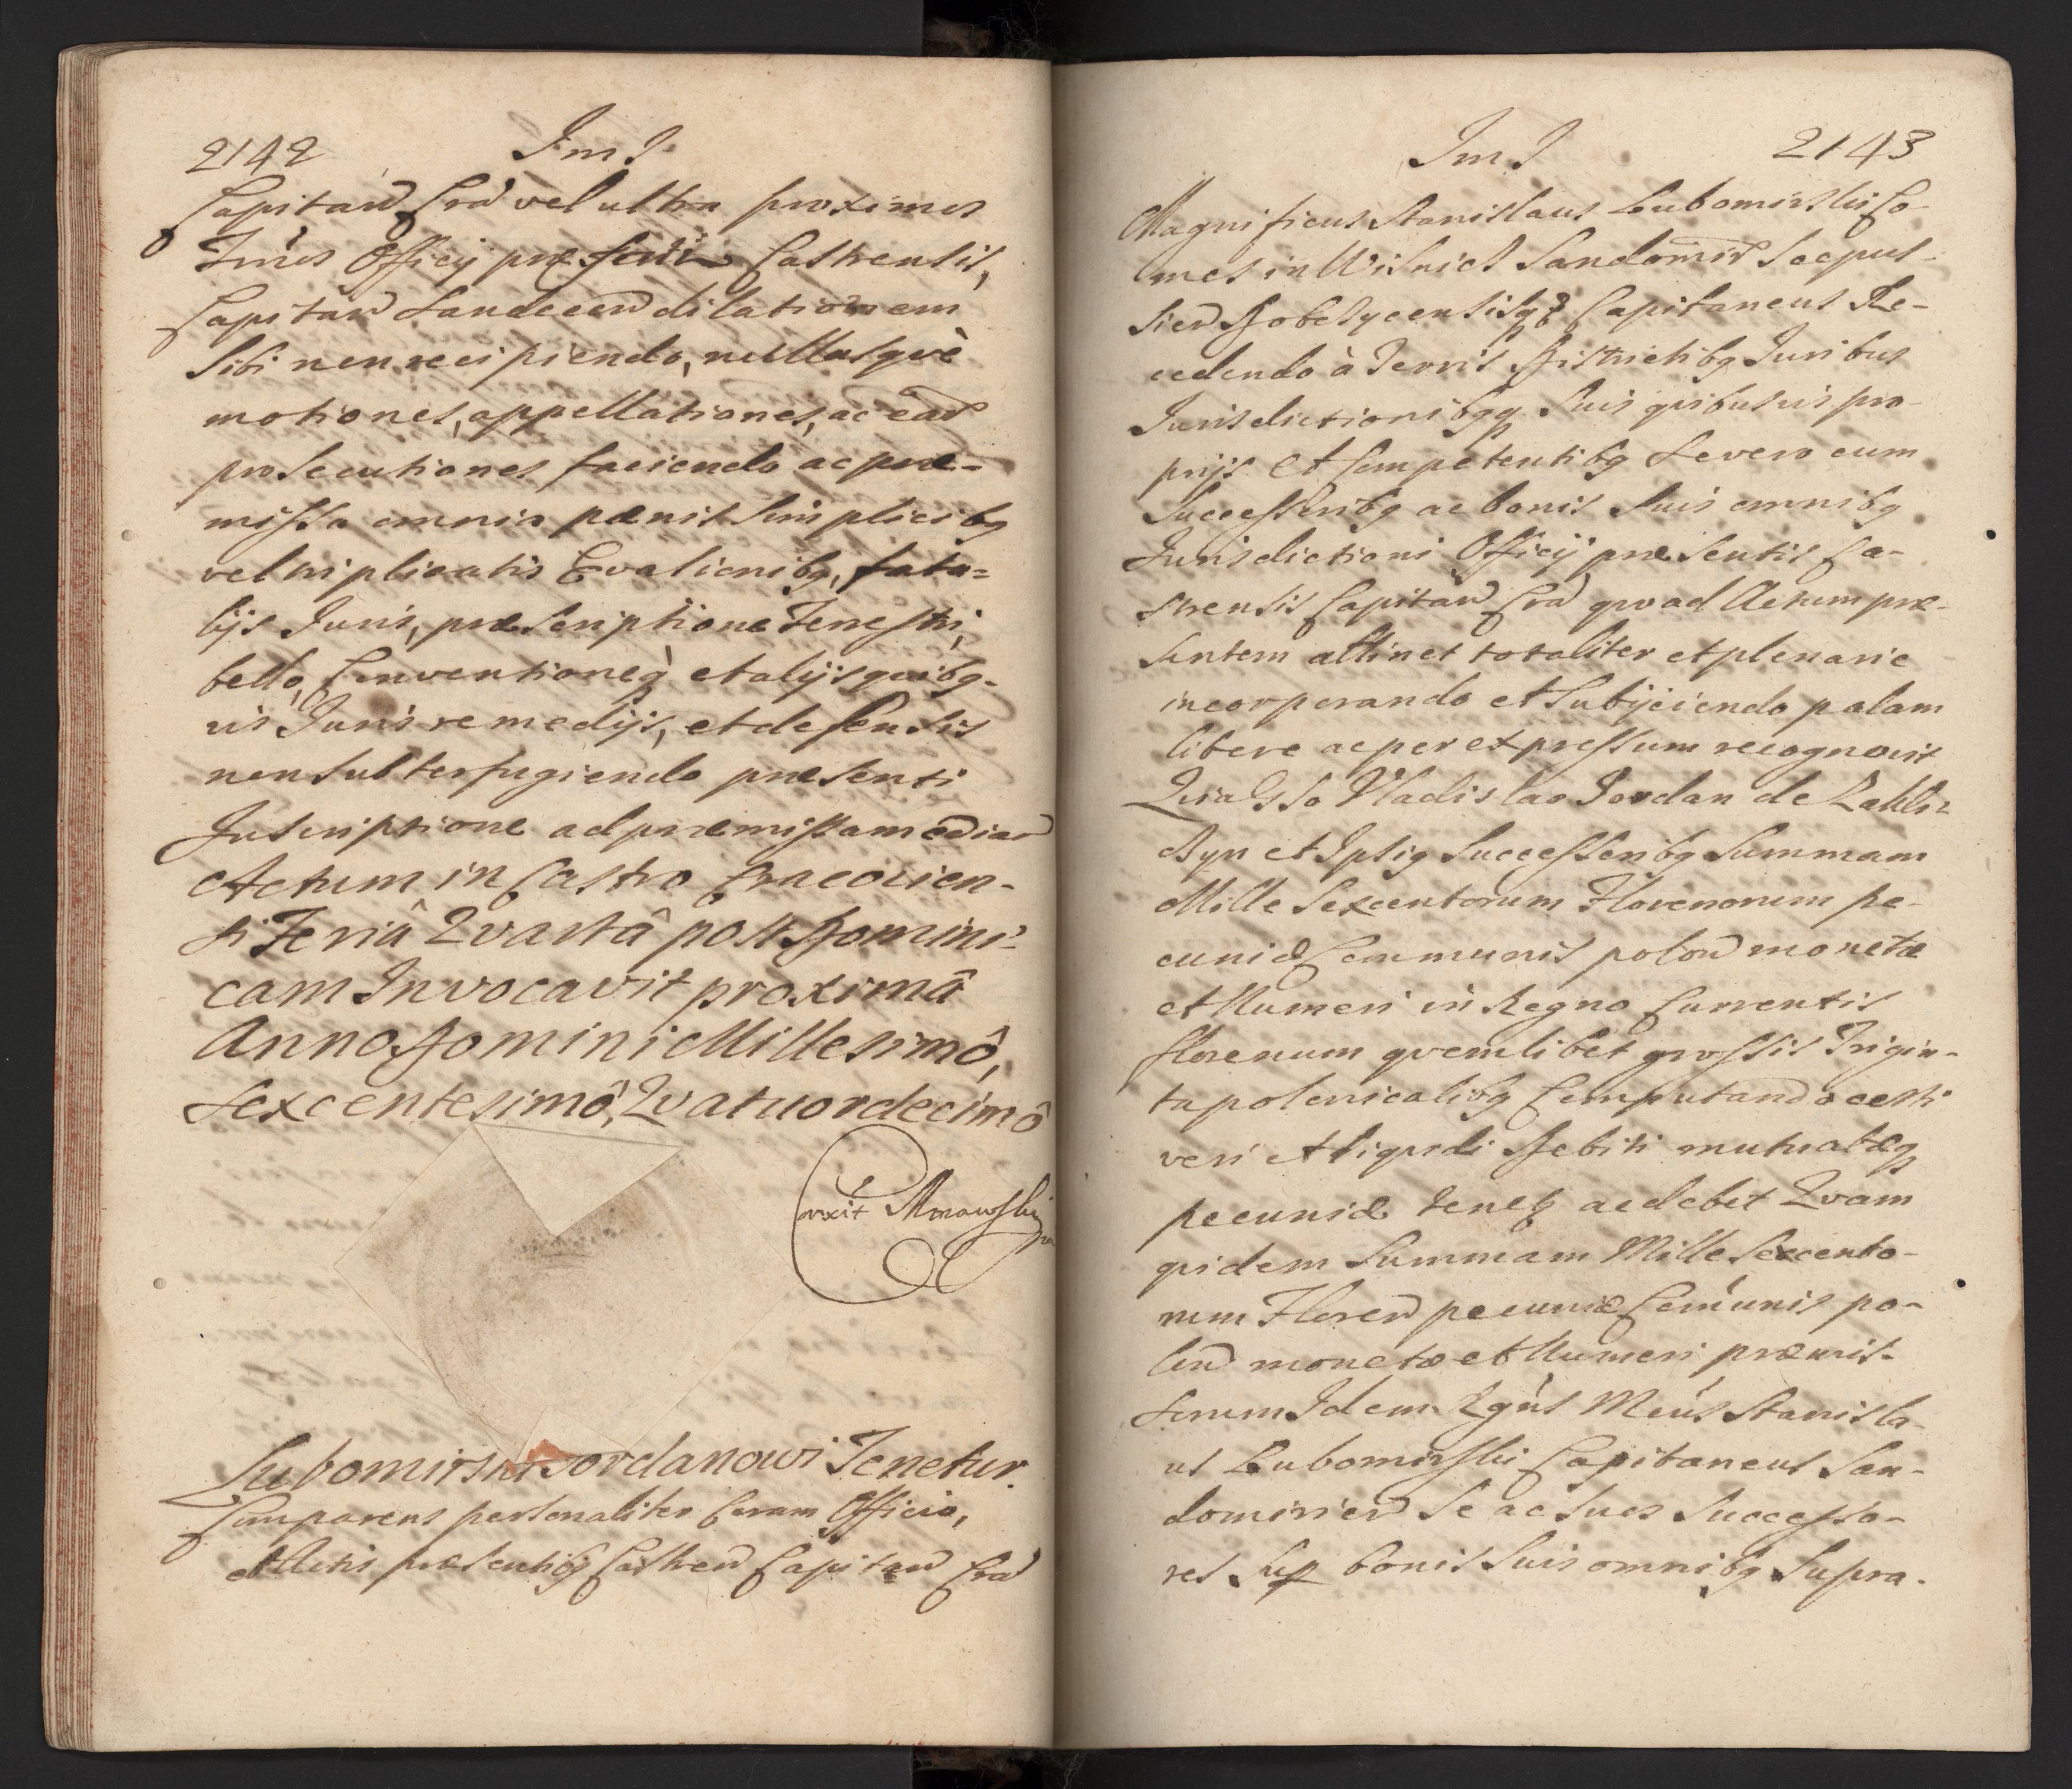 2142 Im I.
Capitan Cra vel ultra proximos
Tmős Officij præsentis Castrensis,
Capitan Sandecen dilationem
sibi non recipiendo, nullasqvè
motiones, appellationes, ac eań
prosecutiones faciendo ac præ-
missa omnia pænis simplicibq
vel triplicatis Evasionibq, fata-
lijs Juris, præscriptione Terrestri,
bello, Conventioneq et alijs quibq-
vis Juris remedijs, et defensis
non subterfugiendo præsenti
Inscriptione ad præmissam median
Actum in Castro Cracovien-
si Feriâ Qvartâ post Domini-
cam Invocavit proximâ
Anno Domini Millesimô,
Sexcentesimô, Qvatuordecimô
Lubomirski Jordanowi Tenetur.
Comparens personaliter Coram Officio,
et Actis præsentibq Castren Capitan Cra
Im I 2143
Magnificus Stanislaus Lubomirski Co-
mes in Wisnicz Sandomir Scepus-
sien Dobczycensisqz Capitaneus Re-
cedendo à Terris Districtibq Juribus
Jurisdictionibqq suis qvibusvis pro-
prijs et Competentibq Severo cum
Successoribq ac bonis suis omnibq
Jurisdictioni Officij præsentis Ca-
strensis Capitan Cra qvoad Actum præ-
sentem attinet totaliter et plenarie
incorporando et subijciendo palam
libere ac per expressum recognovit
Qvia Gso Vladislao Jordan de Zakli-
czyn et Ipsiq Successoribq Summam
Mille Sexcentorum Florenorum pe-
cuniæ Communis polon monetæ
et Numeri in Regno Currentis
florenum qvemlibet grossis Trigin-
ta polonicalibq Computando certi
veri et liqvidi Debiti mutuatæq
pecuniæ tenetq ac debet Qvam
qvidem Summam Mille Sexcento-
rum Floren pecuniæ Com̃unis po-
lon monetæ et Numeri præmis-
sorum Idem Rgńs Meńs Stanisla-
us Lubomirski Capitaneus San-
domirien se ac suos Successo-
res sup bonis suis omnibq Supra-